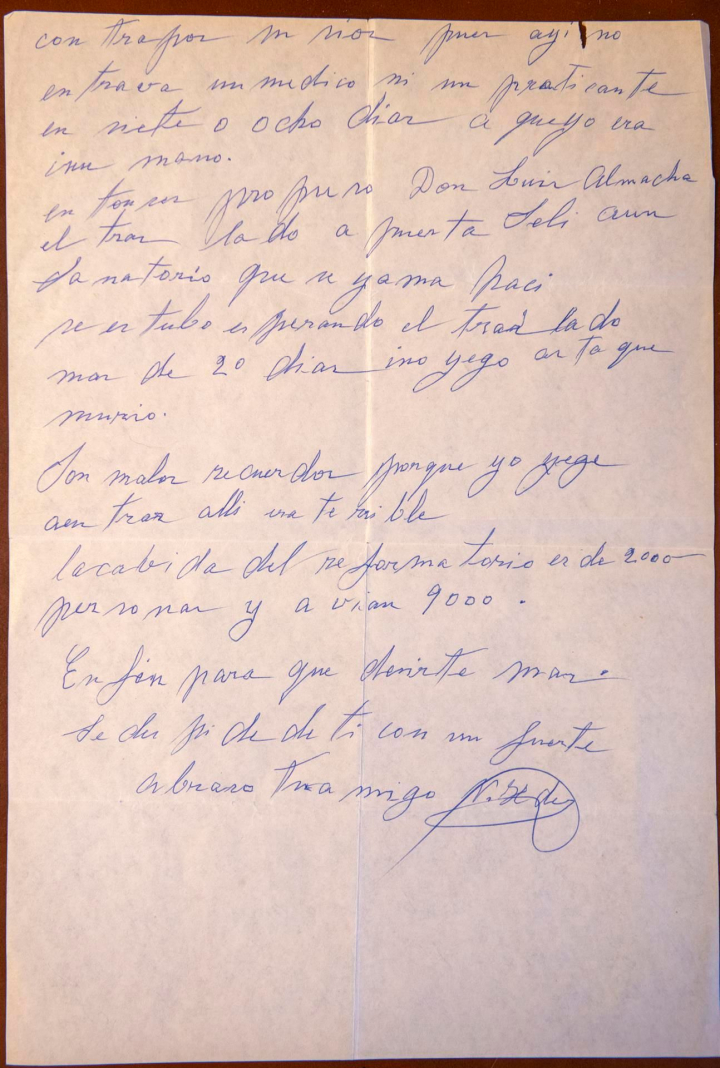 con trapos su sios pues ayi no
en trava un medico ni un praticante
en siete o ocho dias a queyo era
inu mano.
en tonses pro puso Don Luis Almacha
el tras lado a puerta Seli aun
Sanatorio que se yama haci
se es tubo es perando el tras lado
mas de 20 dias ino yego asta que
murio.
Son malos recuerdos porque yo yege
aen tras alli era te rri ble
lacabida del re forma torio es de 2000
personas y a vian 9000.
En fin para que desirte mas.
Se des pi de de ti con un fuerte
abraso tua migo